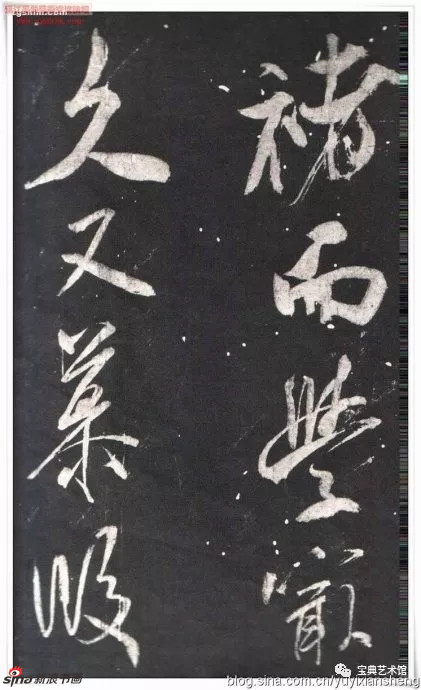 褚而學最
久又慕段
sina新浪书画
宝典艺术馆
blog.sina.com.cn/yuyixiansheng